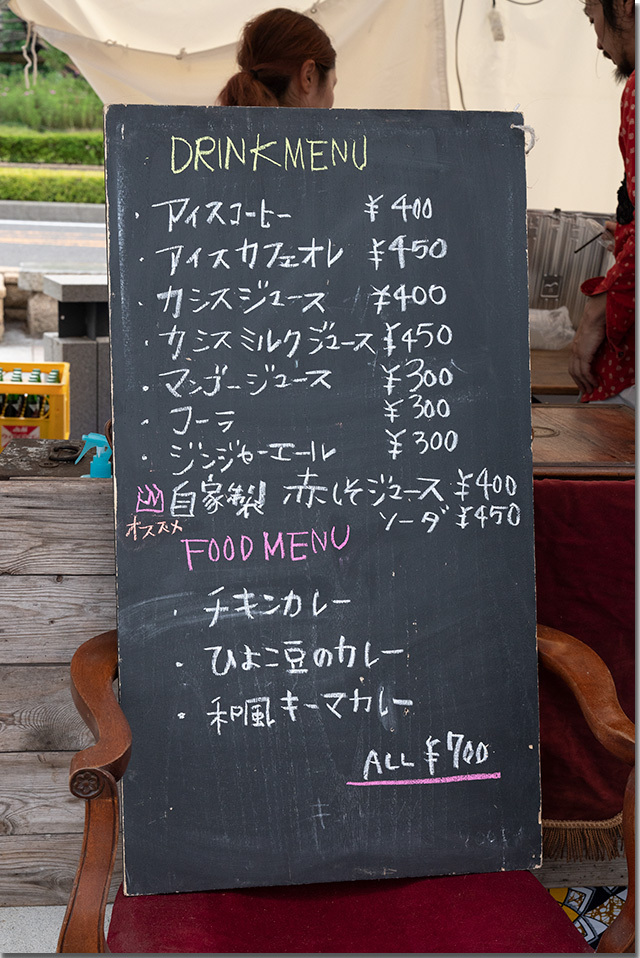 DRINKMENU
・アイスコーヒー ¥400
・アイスカフェオレ ¥450
・カシスジュース ¥400
・カシスミルクジュース ¥450
・マンゴージュース ¥300
・コーラ ¥300
・ジンジャーエール ¥300
自家製 赤しそジュース ¥400
オススメ ソーダ ¥450
FOOD MENU
・チキンカレー
・ひよこ豆のカレー
・和風キーマカレー
ALL ¥700